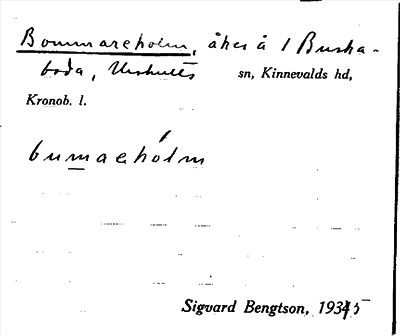 Bommareholm, åker å 1 Buska-
boda, Urshults sn, Kinnevalds hd,
Kronob. l.
bumaehólm
Sigvard Bengtson, 1935